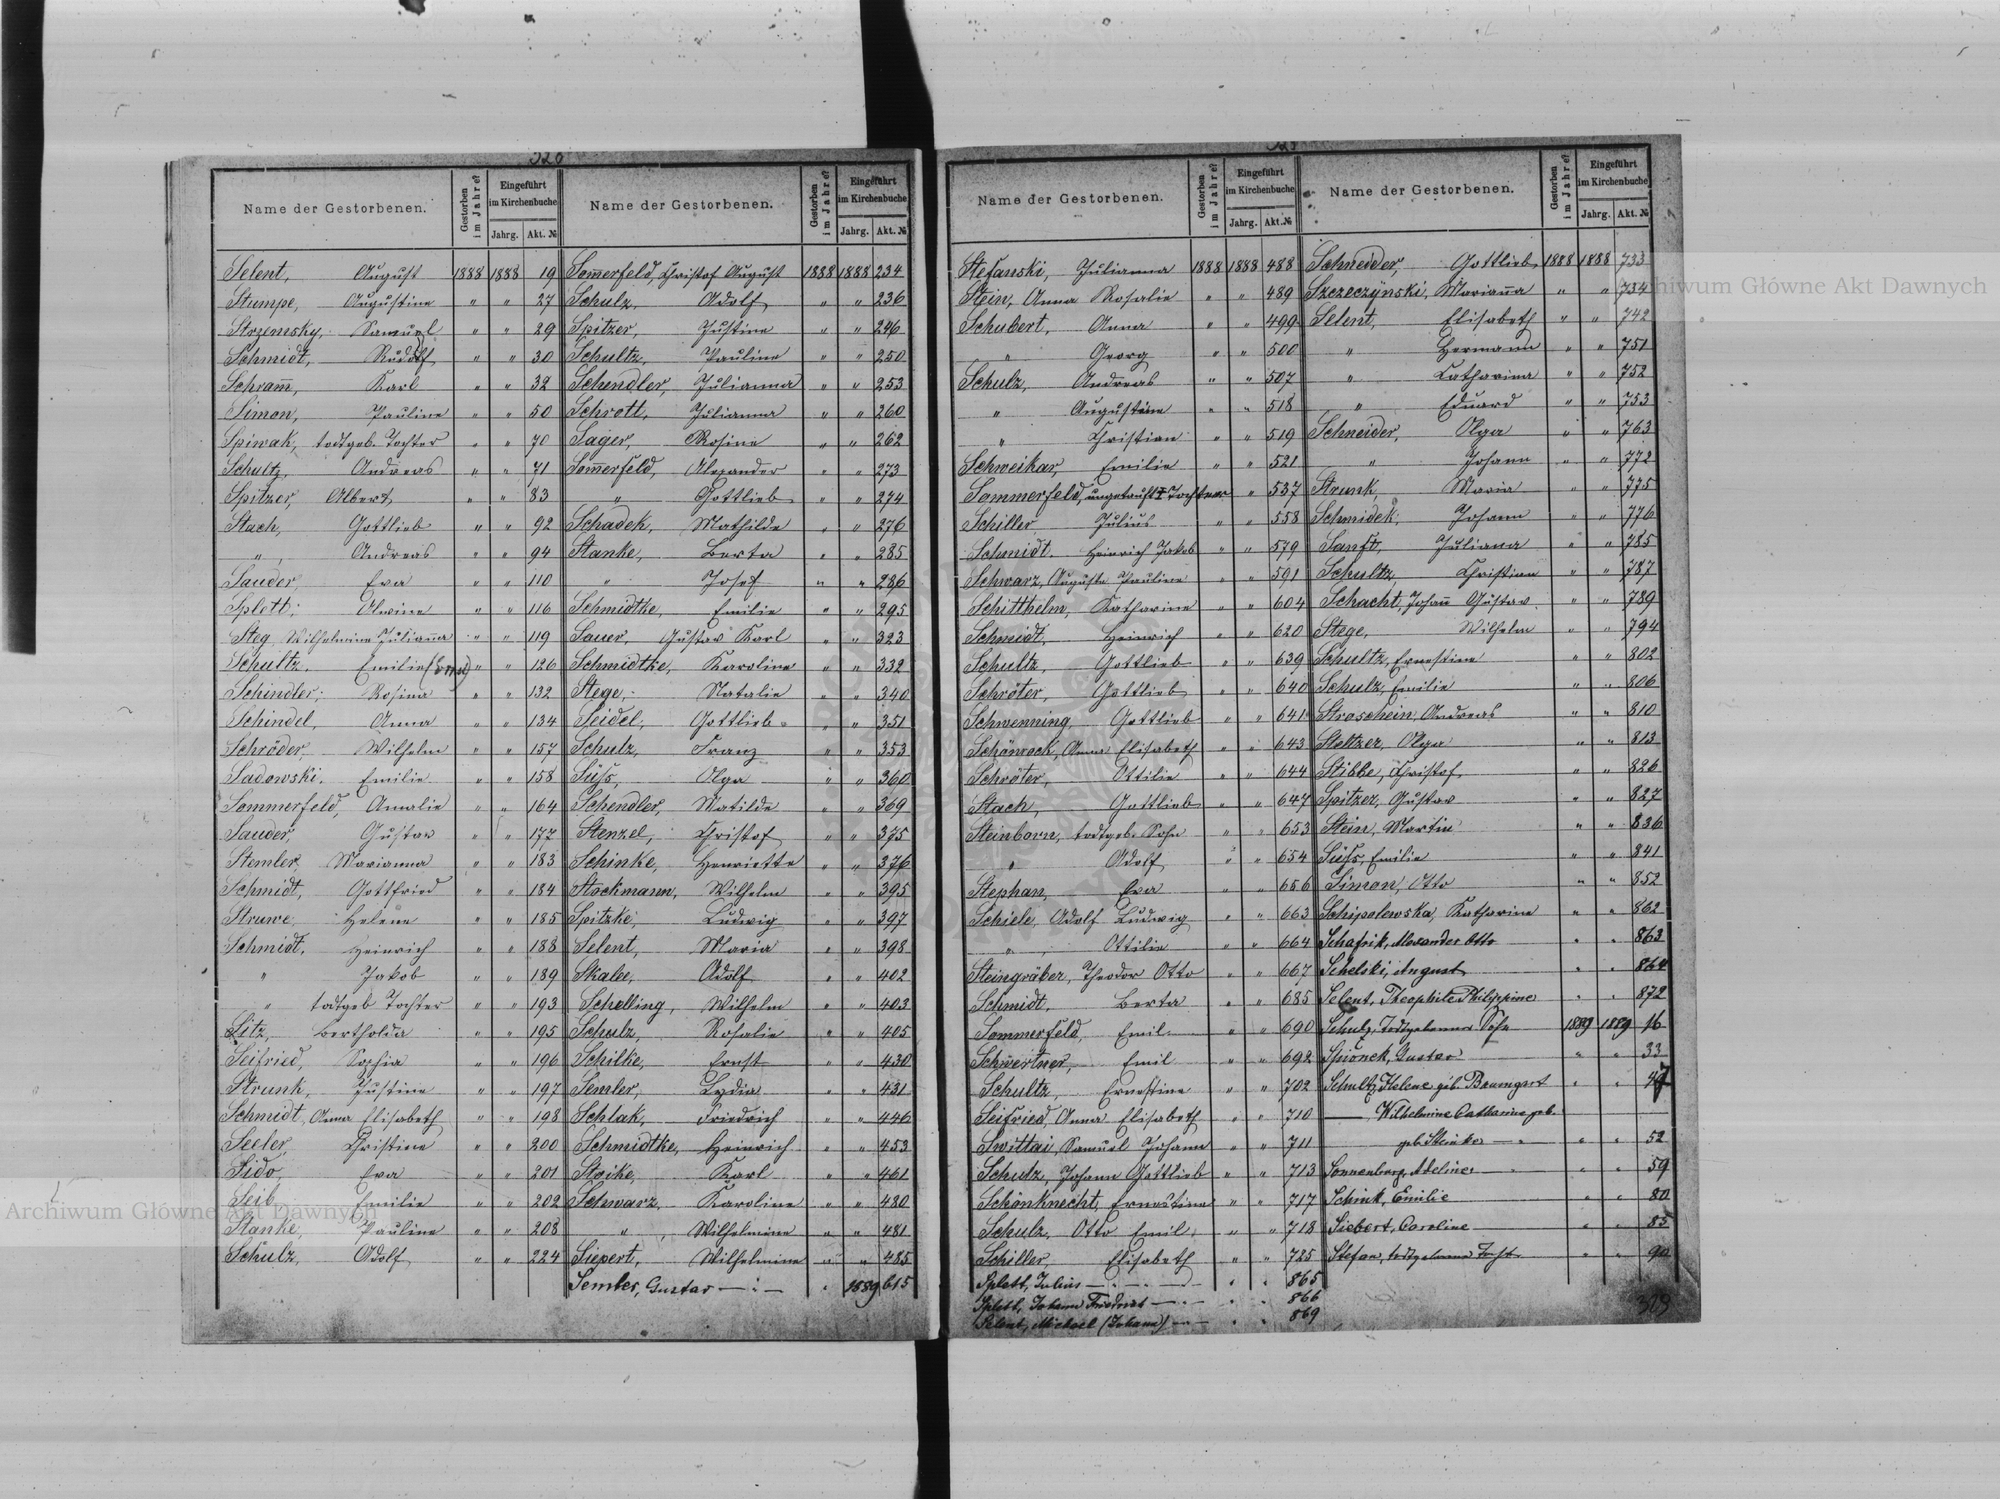 320
Name der Gestorbenen. Gestorben im Jahre? Eingeführt im Kirchenbuche Jahrg. Akt. №
Selent, August 1888 1888 19
Stumpe, Augustine " " 27
Strzemsky, Samuel " " 29
Schmidt, Rudolf " " 30
Schram̅, Karl " " 32
Simon, Pauline " " 50
Spiwak, todtgeb. Tochter " " 70
Schultz, Andreas " " 71
Spitzer, Albert " " 83
Stach, Gottlieb " " 92
" Andreas " " 94
Sauder, Eva " " 110
Splett, Alwine " " 116
Steg, Wilhelmine Julian̅a " " 119
Schultz, Emilie (Ernst) " " 126
Schindler, Rosina " " 132
Schindel, Anna " " 134
Schröder, Wilhelm " " 157
Sadowski, Emilie " " 158
Sommerfeld, Amalie " " 164
Sauder, Gustav " " 177
Stemler, Marianna " " 183
Schmidt, Gottfried " " 184
Struwe, Helene " " 185
Schmidt, Heinrich " " 188
" Jakob " " 189
" todtgeb Tochter " " 193
Sitz, Bertholda " " 195
Seifried, Sophia " " 196
Strunk, Justine " " 197
Schmidt, Anna Elisabeth " " 198
Seeler, Christine " " 200
Sido, Eva " " 201
Seib, Emilie " " 202
Stanke, Pauline " " 208
Schulz, Adolf " " 224
Name der Gestorbenen. Gestorben im Jahre? Eingeführt im Kirchenbuche Jahrg. Akt. №
Som̅erfeld, Christof August 1888 1888 234
Schulz, Adolf " " 236
Spitzer, Justine " " 246
Schultz, Pauline " " 250
Schendler, Julianna " " 253
Schrott, Julianna " " 260
Sager, Rosine " " 262
Som̅erfeld, Alexander " " 273
" Gottlieb " " 274
Schadek, Mathilde " " 276
Stanke, Berta " " 285
" Josef " " 286
Schmidtke, Emilie " " 295
Sauer, Gustav Karl " " 323
Schmidtke, Karoline " " 332
Stege, Natalie " " 340
Seidel, Gottlieb " " 351
Schulz, Franz " " 353
Süss, Olga " " 360
Schendler, Matilde " " 369
Stenzel, Christof " " 375
Schinke, Henriette " " 376
Stockmann, Wilhelm " " 395
Spitzke, Ludwig " " 397
Selent, Maria " " 398
Skalee, Adolf " " 402
Schelling, Wilhelm " " 403
Schulz, Rosalie " " 405
Schilke, Ernst " " 430
Semler, Lydia " " 431
Schlak, Friedrich " " 446
Schmidtke, Heinrich " " 453
Stoike, Karl " " 461
Schwarz, Karoline " " 480
" Wilhelmine " " 481
Siepert, Wilhelmine " " 485
Semler, Gustav " 1889 615
Name der Gestorbenen. Gestorben im Jahre? Eingeführt im Kirchenbuche Jahrg. Akt. №
Stefanski, Julianna 1888 1888 488
Stein, Anna Rosalie " " 489
Schubert, Anna " " 499
" Georg " " 500
Schulz, Andreas " " 507
" Augustine " " 518
" Christian " " 519
Schweikar, Emilie " " 521
Sommerfeld, ungetauft Tochter " 537
Schiller Julius " " 558
Schmidt. Heinrich Jakob " " 579
Schwarz, Auguste Pauline " " 591
Schitthelm, Katharine " " 604
Schmidt, Heinrich " " 620
Schultz, Gottlieb " " 639
Schröter, Gottlieb " " 640
Schwenning, Gottlieb " " 641
Schönrock, Anna Elisabeth " " 643
Schröter, Ottilie " " 644
Stach, Gottlieb " " 647
Steinborn, todtgeb. Sohn " " 653
" Adolf " " 654
Stephan, Eva " " 656
Schiele, Adolf Ludwig " " 663
" Ottilie " " 664
Steingräber, Theodor Otto " " 667
Schmidt, Berta " " 685
Sommerfeld, Emil " " 690
Schwertner, Emil " " 692
Schultz, Ernestine " " 702
Seifried, Anna Elisabeth " " 710
Swittai, Samuel Johann " " 711
Schulz, Johann Gottlieb " " 713
Schönknecht, Ernestine " " 717
Schulz, Otto Emil " " 718
Schiller, Elisabeth " " 725
Splett, Julius " " 865
Splett, Johann Friedrich " " 866
Selent, Michael (Johann) " " 869
Name der Gestorbenen. Gestorben im Jahre? Eingeführt im Kirchenbuche Jahrg. Akt. №
Schnedder, Gottlieb 1888 1888 733
Szczeczÿnski, Marian̅a " " 734
Selent, Elisabeth " " 742
" Hermann " " 751
" Catharina " " 752
" Eduard " " 753
Schneider, Olga " " 763
" Johann " " 772
Strunk, Maria " " 775
Schmidek, Johann " " 776
Sanft, Juliana " " 785
Schultz, Christian " " 787
Schacht, Johan̅ Gustav " " 789
Stege, Wilhelm " " 794
Schultz, Ernestine " " 802
Schulz, Emilie " " 806
Stroschein, Andreas " " 810
Steltzer, Olga " " 813
Stibbe, Christof " " 826
Spitzer, Gustav " " 827
Stein, Martin " " 836
Süss, Emilie " " 841
Simon, Otto " " 852
Schipolewska, Katharine " " 862
Schafrik, Alexander Otto " " 863
Schelski, August " " 864
Selent, Theophile Philippine " " 872
Schulz, Todtgeborener Sohn 1889 1889 16
Spionek, Gustav " " 33
Schultz, Helene geb. Baumgart " " 47
— Wilhelmine Catharine geb.
geb. Steinke " " 52
Sonnenberg, Adeline " " 59
Schink, Emilie " " 80
Siebert, Caroline " " 85
Stefan, todtgeborne Tocht " " 90
Archiwum Główne Akt Dawnych
Archiwum Główne Akt Dawnych